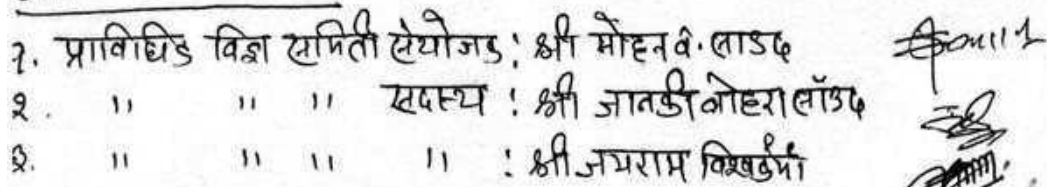 १. प्राविधिक विज्ञ समिती संयोजक : श्री मोहन व. लाडद
२. " " " सदस्य : श्री जानकी बोहरा लॉडद
३. " " " " : श्री जयराम विश्वकर्मा